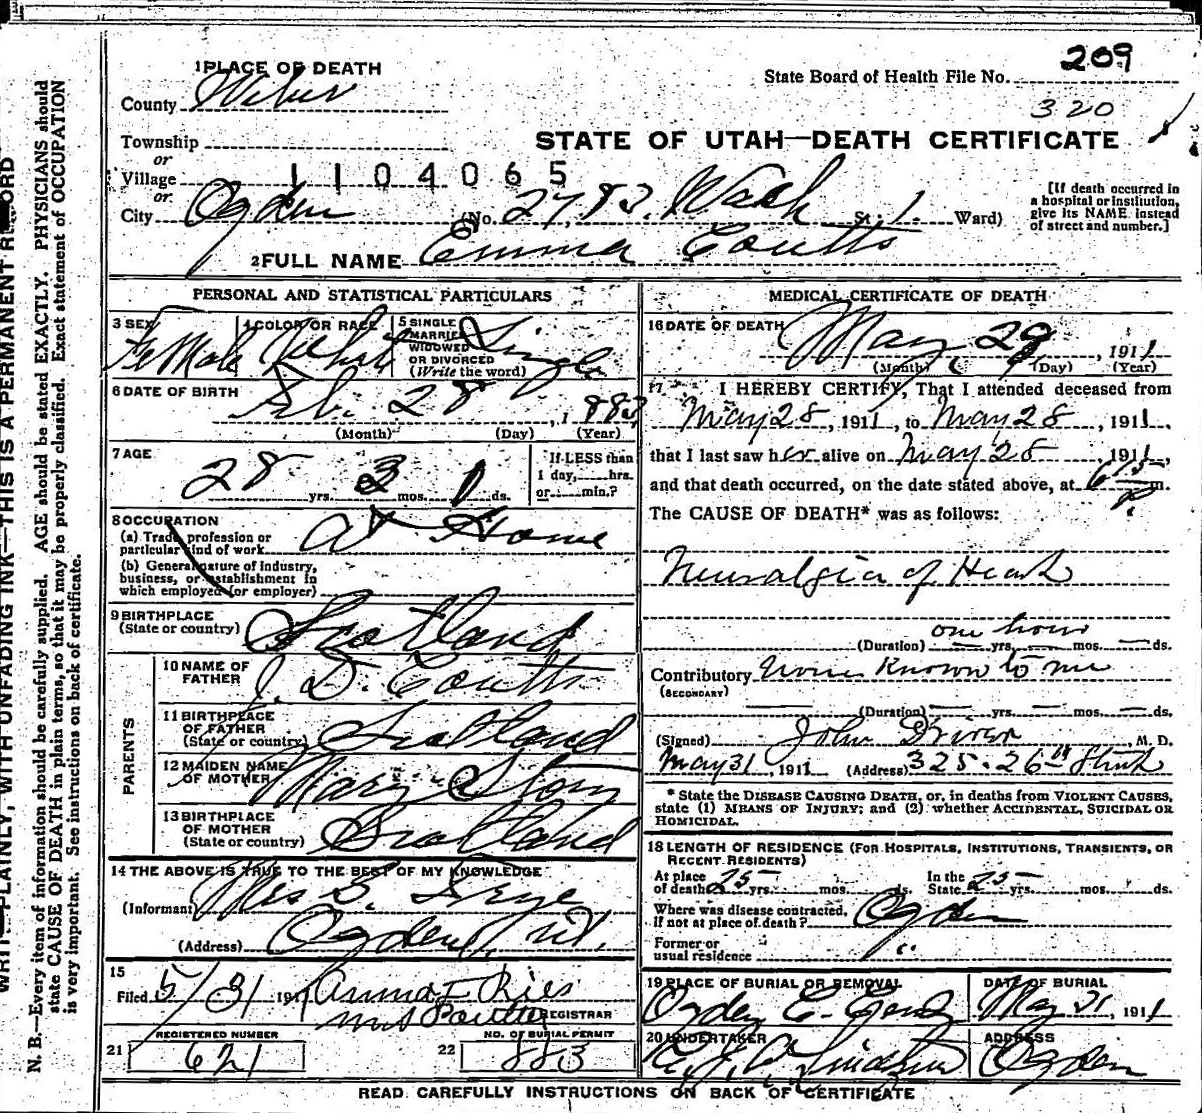 209
State Board of Health File No.
320
1 PLACE OF DEATH
County Weber
STATE OF UTAH—DEATH CERTIFICATE
Township
or
Village 1104065
or
City Ogden (No. 2783. Wash St. 1. Ward)
[If death occurred in
a hospital or institution,
give its NAME instead
of street and number.]
2 FULL NAME Emma Coutts
PERSONAL AND STATISTICAL PARTICULARS
3 SEX Female
4 COLOR OR RACE White
5 SINGLE
MARRIED
WIDOWED
OR DIVORCED
(Write the word)
Single
6 DATE OF BIRTH Feb. 28, 1883
(Month) (Day) (Year)
7 AGE
28 yrs. 3 mos. 1 ds.
If LESS than
1 day, hrs.
or min.?
8 OCCUPATION
(a) Trade, profession or
particular kind of work At Home
(b) General nature of industry,
business, or establishment in
which employed (or employer)
9 BIRTHPLACE
(State or country) Scotland
PARENTS
10 NAME OF
FATHER J. D. Coutts
11 BIRTHPLACE
OF FATHER
(State or country) Scotland
12 MAIDEN NAME
OF MOTHER Mary Story
13 BIRTHPLACE
OF MOTHER
(State or country) Scotland
14 THE ABOVE IS TRUE TO THE BEST OF MY KNOWLEDGE
(Informant) Mrs
(Address) Ogden, Ut.
15
Filed 5/31 191 Anna Ries
Mrs
REGISTRAR
REGISTERED NUMBER
21 621
NO. OF BURIAL PERMIT
22 883
MEDICAL CERTIFICATE OF DEATH
16 DATE OF DEATH
May 29, 1911
(Month) (Day) (Year)
17 I HEREBY CERTIFY, That I attended deceased from
May 28, 1911, to May 28, 1911,
that I last saw her alive on May 28, 1911,
and that death occurred, on the date stated above, at 6 15 P. m.
The CAUSE OF DEATH* was as follows:
Neuralgia of Heart
one hour
(Duration) — yrs. — mos. — ds.
Contributory None Known to me
(SECONDARY)
(Duration) — yrs. — mos. — ds.
(Signed) John Driver, M. D.
May 31, 1911 (Address) 325. 26th Street
* State the DISEASE CAUSING DEATH, or, in deaths from VIOLENT CAUSES,
state (1) MEANS OF INJURY; and (2) whether ACCIDENTAL, SUICIDAL OR
HOMICIDAL.
18 LENGTH OF RESIDENCE (FOR HOSPITALS, INSTITUTIONS, TRANSIENTS, OR
RECENT RESIDENTS)
At place
of death 25 yrs. mos. ds.
In the
State 25 yrs. mos. ds.
Where was disease contracted,
if not at place of death? Ogden
Former or
usual residence
19 PLACE OF BURIAL OR REMOVAL
Ogden C.
DATE OF BURIAL
May 31, 1911
20 UNDERTAKER
Lindquist
ADDRESS
Ogden
READ CAREFULLY INSTRUCTIONS ON BACK OF CERTIFICATE
WRITE PLAINLY, WITH UNFADING INK—THIS IS A PERMANENT RECORD
N. B.—Every item of information should be carefully supplied. AGE should be stated EXACTLY. PHYSICIANS should
state CAUSE OF DEATH in plain terms, so that it may be properly classified. Exact statement of OCCUPATION
is very important. See instructions on back of certificate.